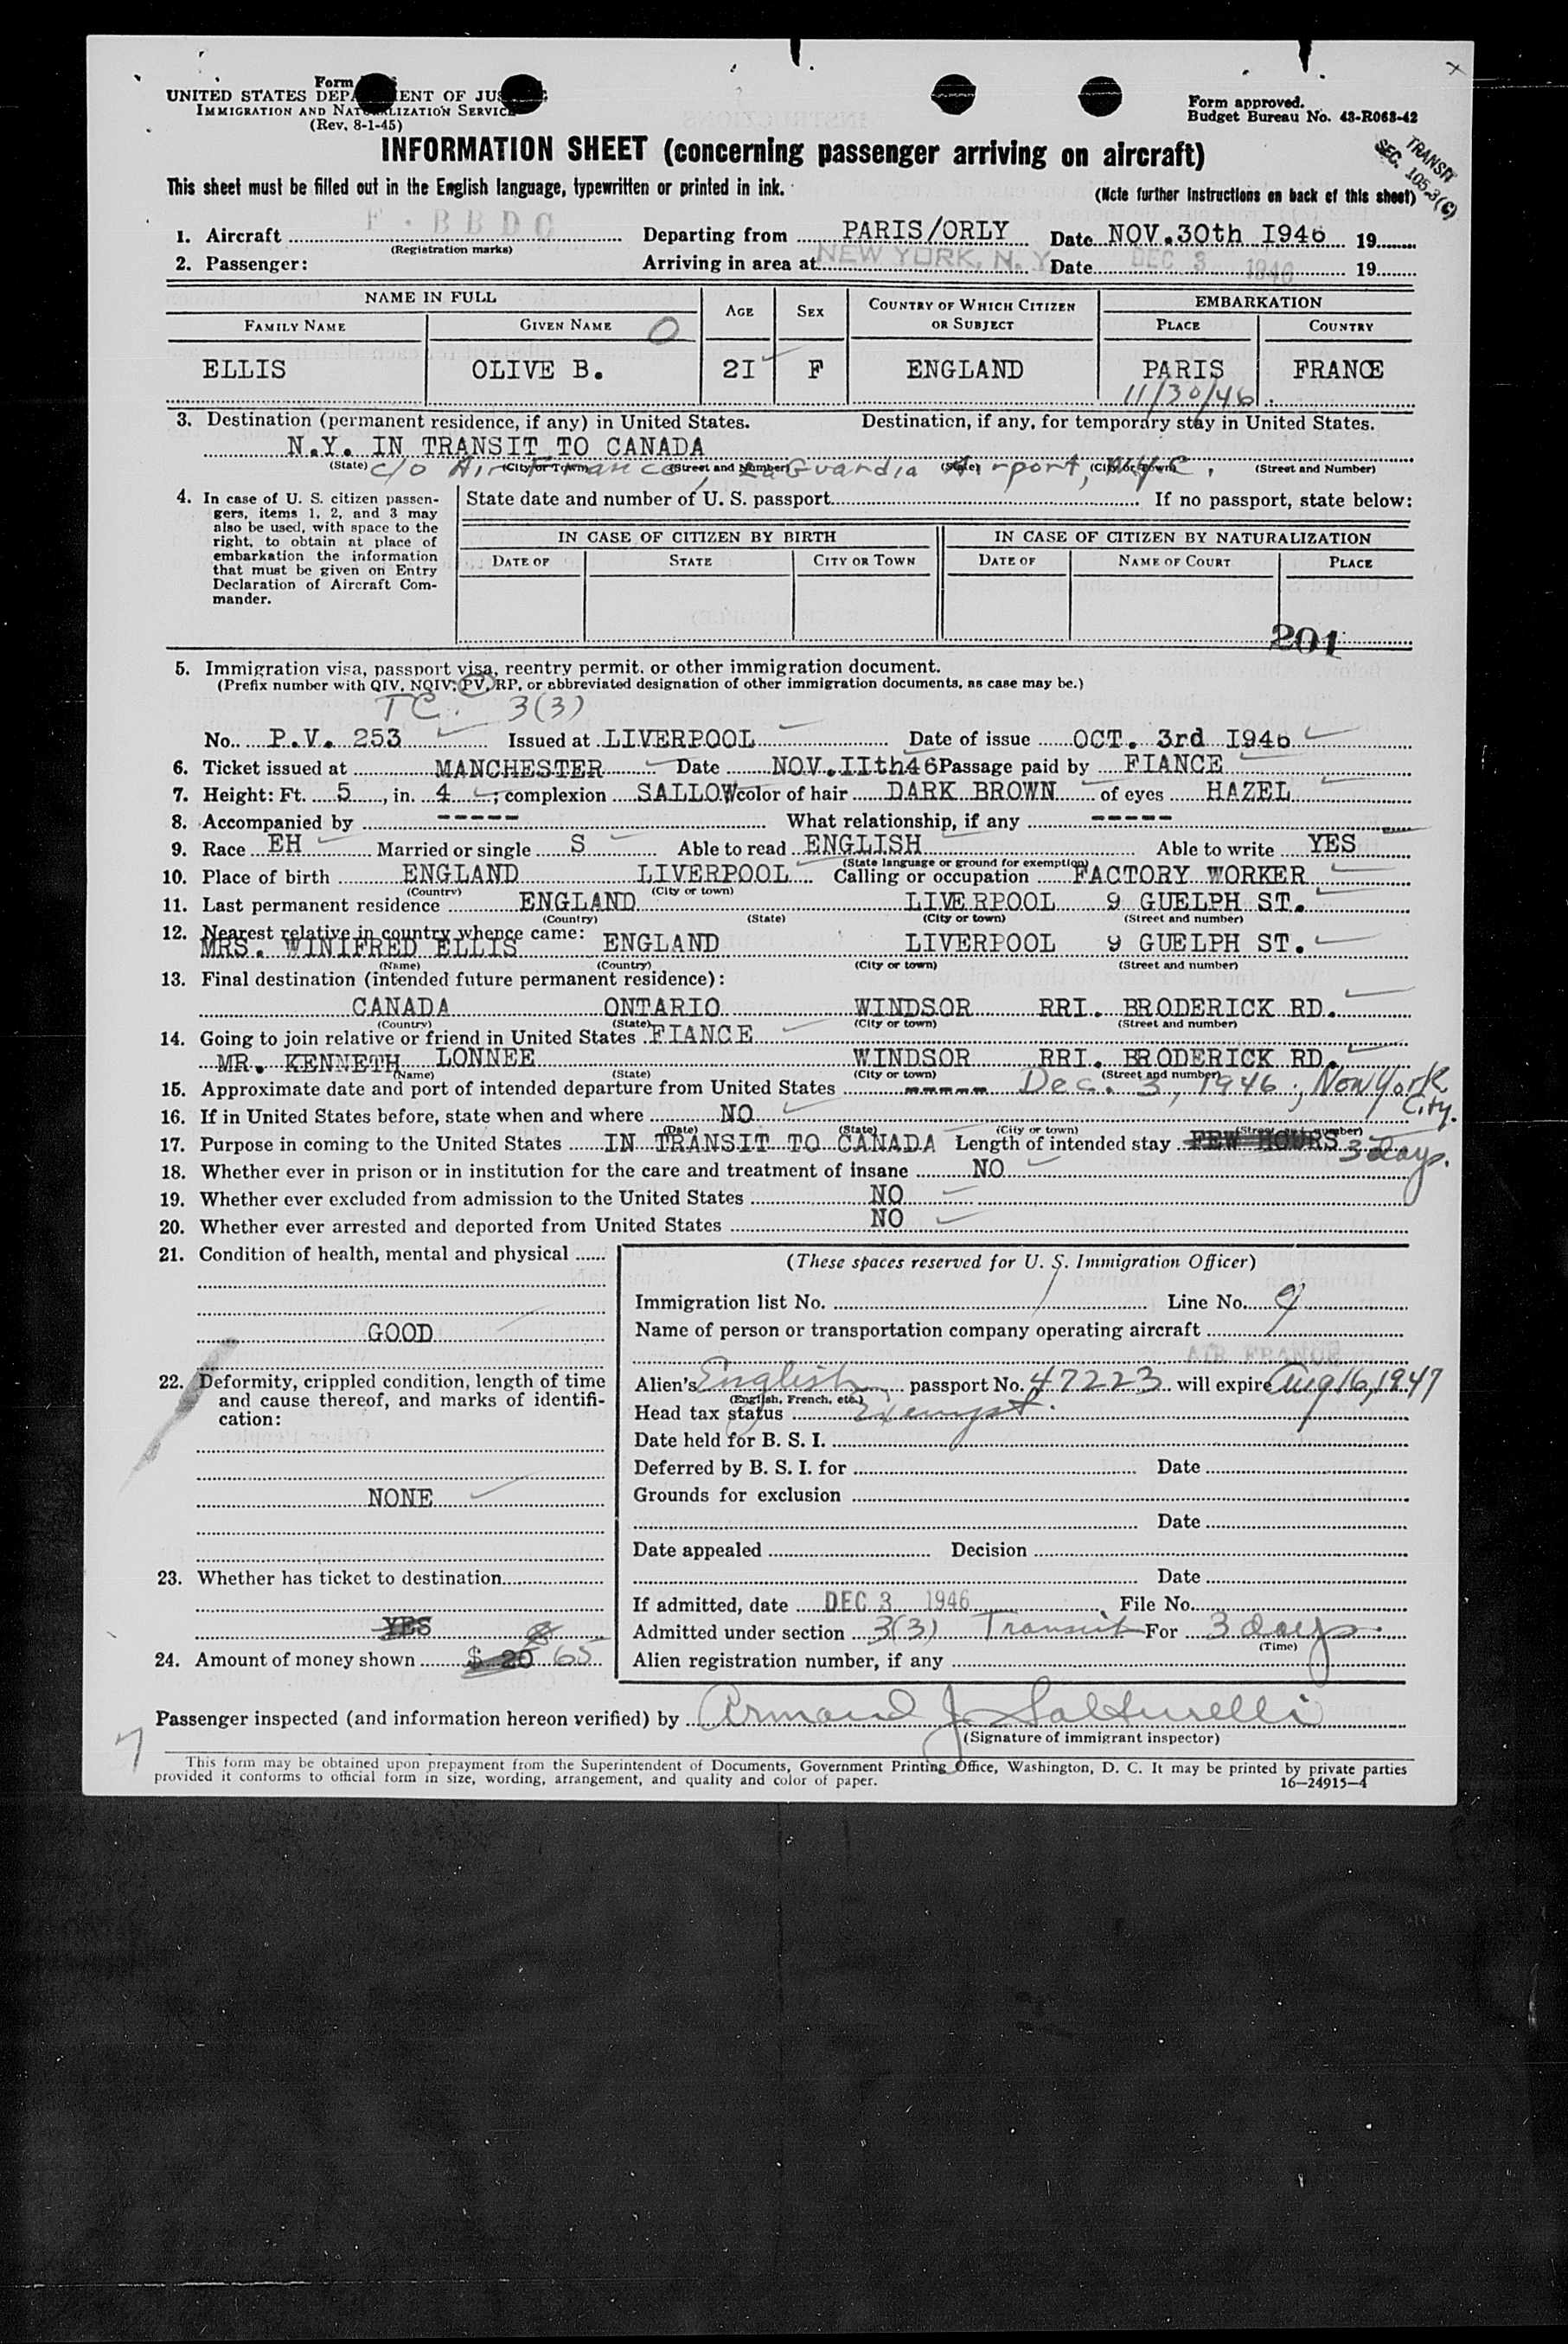 Form
UNITED STATES DEPARTMENT OF JUSTICE
IMMIGRATION AND NATURALIZATION SERVICE
(Rev. 8-1-45)
Form approved.
Budget Bureau No. 43-R063-42
TRANSIT
SEC. 105.3(C)
INFORMATION SHEET (concerning passenger arriving on aircraft)
This sheet must be filled out in the English language, typewritten or printed in ink.
(Note further instructions on back of this sheet)
1. Aircraft F-BBDC Departing from PARIS/ORLY Date NOV.30th I946 19
(Registration marks)
2. Passenger: Arriving in area at NEW YORK, N. Y. Date DEC 3 1946 19
NAME IN FULL AGE SEX COUNTRY OF WHICH CITIZEN OR SUBJECT EMBARKATION
FAMILY NAME GIVEN NAME O PLACE COUNTRY
ELLIS OLIVE B. 2I F ENGLAND PARIS FRANCE
11/30/46
3. Destination (permanent residence, if any) in United States. Destination, if any, for temporary stay in United States.
N.Y. IN TRANSIT TO CANADA
c/o Air France, LaGuardia Airport, NYC.
(State) (City or Town) (Street and Number) (State) (City or Town) (Street and Number)
4. In case of U. S. citizen passengers, items 1, 2, and 3 may also be used, with space to the right, to obtain at place of embarkation the information that must be given on Entry Declaration of Aircraft Commander.
State date and number of U. S. passport If no passport, state below:
IN CASE OF CITIZEN BY BIRTH IN CASE OF CITIZEN BY NATURALIZATION
DATE OF STATE CITY OR TOWN DATE OF NAME OF COURT PLACE
201
5. Immigration visa, passport visa, reentry permit, or other immigration document.
(Prefix number with QIV, NQIV, PV, RP, or abbreviated designation of other immigration documents, as case may be.)
TC. 3(3)
No. P.V. 253 Issued at LIVERPOOL Date of issue OCT. 3rd I946
6. Ticket issued at MANCHESTER Date NOV.IIth46 Passage paid by FIANCE
7. Height: Ft. 5, in. 4; complexion SALLOW color of hair DARK BROWN of eyes HAZEL
8. Accompanied by ----- What relationship, if any -----
9. Race EH Married or single S Able to read ENGLISH Able to write YES
(State language or ground for exemption)
10. Place of birth ENGLAND LIVERPOOL Calling or occupation FACTORY WORKER
(Country) (City or town)
11. Last permanent residence ENGLAND LIVERPOOL 9 GUELPH ST.
(Country) (State) (City or town) (Street and number)
12. Nearest relative in country whence came:
MRS. WINIFRED ELLIS ENGLAND LIVERPOOL 9 GUELPH ST.
(Name) (Country) (City or town) (Street and number)
13. Final destination (intended future permanent residence):
CANADA ONTARIO WINDSOR RRI. BRODERICK RD.
(Country) (State) (City or town) (Street and number)
14. Going to join relative or friend in United States FIANCE
MR. KENNETH LONNEE WINDSOR RRI. BRODERICK RD.
(Name) (State) (City or town) (Street and number)
15. Approximate date and port of intended departure from United States ----- Dec. 3, 1946; New York City.
16. If in United States before, state when and where NO
(Date) (State) (City or town) (Street and number)
17. Purpose in coming to the United States IN TRANSIT TO CANADA Length of intended stay FEW HOURS 3 days.
18. Whether ever in prison or in institution for the care and treatment of insane NO
19. Whether ever excluded from admission to the United States NO
20. Whether ever arrested and deported from United States NO
21. Condition of health, mental and physical
GOOD
22. Deformity, crippled condition, length of time and cause thereof, and marks of identification:
NONE
23. Whether has ticket to destination
YES
24. Amount of money shown $ 20 65
(These spaces reserved for U. S. Immigration Officer)
Immigration list No. Line No. 9
Name of person or transportation company operating aircraft
AIR FRANCE
Alien's English passport No. 47223 will expire Aug 16, 1947
(English, French, etc.)
Head tax status Exempt.
Date held for B. S. I.
Deferred by B. S. I. for Date
Grounds for exclusion
Date
Date appealed Decision
Date
If admitted, date DEC 3 1946 File No.
Admitted under section 3(3) Transit For 3 days.
(Time)
Alien registration number, if any
Passenger inspected (and information hereon verified) by Armand J
(Signature of immigrant inspector)
7
This form may be obtained upon prepayment from the Superintendent of Documents, Government Printing Office, Washington, D. C. It may be printed by private parties
provided it conforms to official form in size, wording, arrangement, and quality and color of paper.
16—24915-4